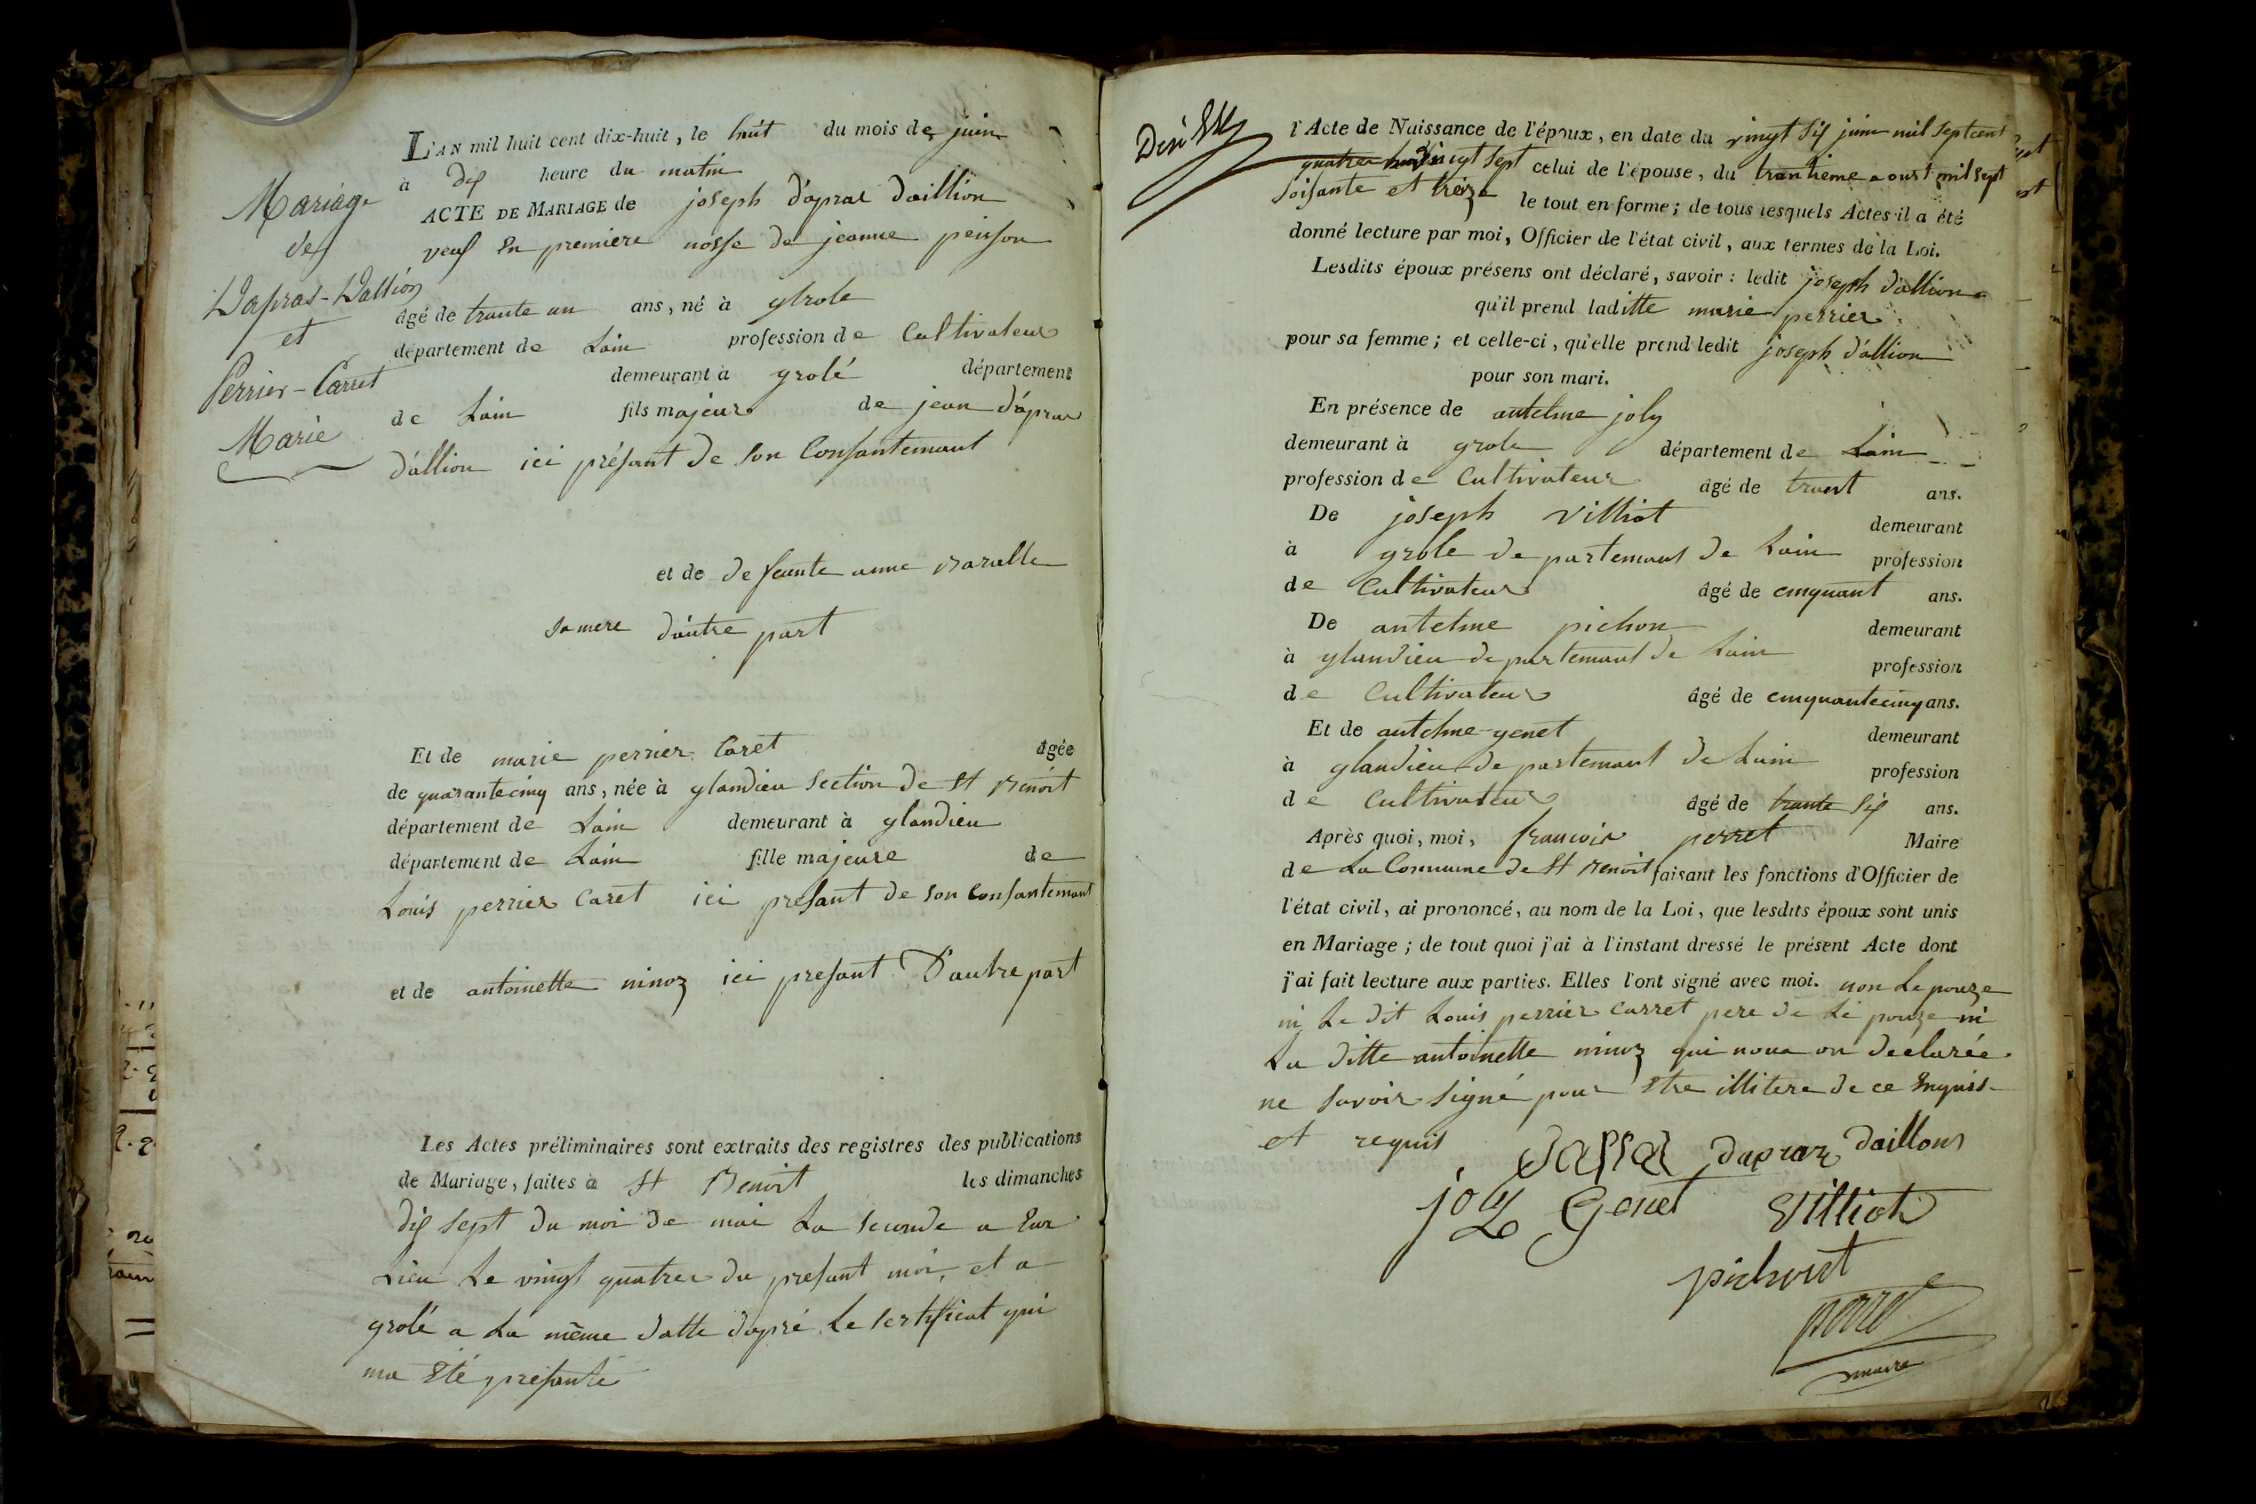 L'AN mil huit cent dix-huit, le huit du mois de juin
à dix heure du matin
ACTE DE MARIAGE de joseph d'apras daillion
veuf en premiere nosse de jeanne peisson
âgé de trante un ans, né à grole
département de Lain profession de Cultivateur
demeurant à grolé département
de Lain fils majeur de jean d'apras
d'allion ici présant de son Consantemant
et de defeunte anne
sa mere d'autre part
Mariage
des
Dapras-Dallion
et
Perrier-Carret
Marie
Et de marie perrier Caret âgée
de quarantecinq ans, née à glandieu section de St Benoit
département de Lain demeurant à glandieu
département de Lain fille majeure de
Louis perrier Caret ici présant de son consantemant
et de antoinette ninoz ici présant D'autre part
Les Actes préliminaires sont extraits des registres des publications
de Mariage, faites à St Benoit les dimanches
dix sept du moi de mai La seconde a Eux
Lieu Le vingt quatrer du présant moi, et a
grolé a La même datte dapré Le sertificat qui
ma Eté présanté
l'Acte de Naissance de l'époux, en date du vingt six juin mil septcent
quatrer vingt sept celui de l'épouse, du trantieme aoust mil sept
soisante et treize le tout en forme; de tous lesquels Actes il a été
donné lecture par moi, Officier de l'état civil, aux termes de la Loi.
Lesdits époux présens ont déclaré, savoir : ledit joseph d'allion
qu'il prend laditte marie perrier
pour sa femme; et celle-ci, qu'elle prend ledit joseph d'allion
pour son mari.
En présence de antelme joly
demeurant à grole département de Lain
profession de Cultivateur âgé de trant ans.
De joseph Villiot demeurant
à grole departemant de Lain profession
de Cultivateur âgé de cinquant ans.
De antelme pichon demeurant
à glandieu departemant de Lain profession
de Cultivateur âgé de cinquantecinq ans.
Et de antelme genet demeurant
à glandieu departemant de Lain profession
de Cultivateur âgé de trante six ans.
Après quoi, moi, francois perret Maire
de La Commune de St Benoit faisant les fonctions d'Officier de
l'état civil, ai prononcé, au nom de la Loi, que lesdits époux sont unis
en Mariage; de tout quoi j'ai à l'instant dressé le présent Acte dont
j'ai fait lecture aux parties. Elles l'ont signé avec moi. non Lepouze
ni Le dit Louis perrier Carret pere de Lé pouze ni
La ditte antoinette ninoz qui nous on declarée
ne savoir signé pour Etre illitere de ce Enquis
et requis
dapraz daillons
joly Genet Villiot
pichont
perret
maire